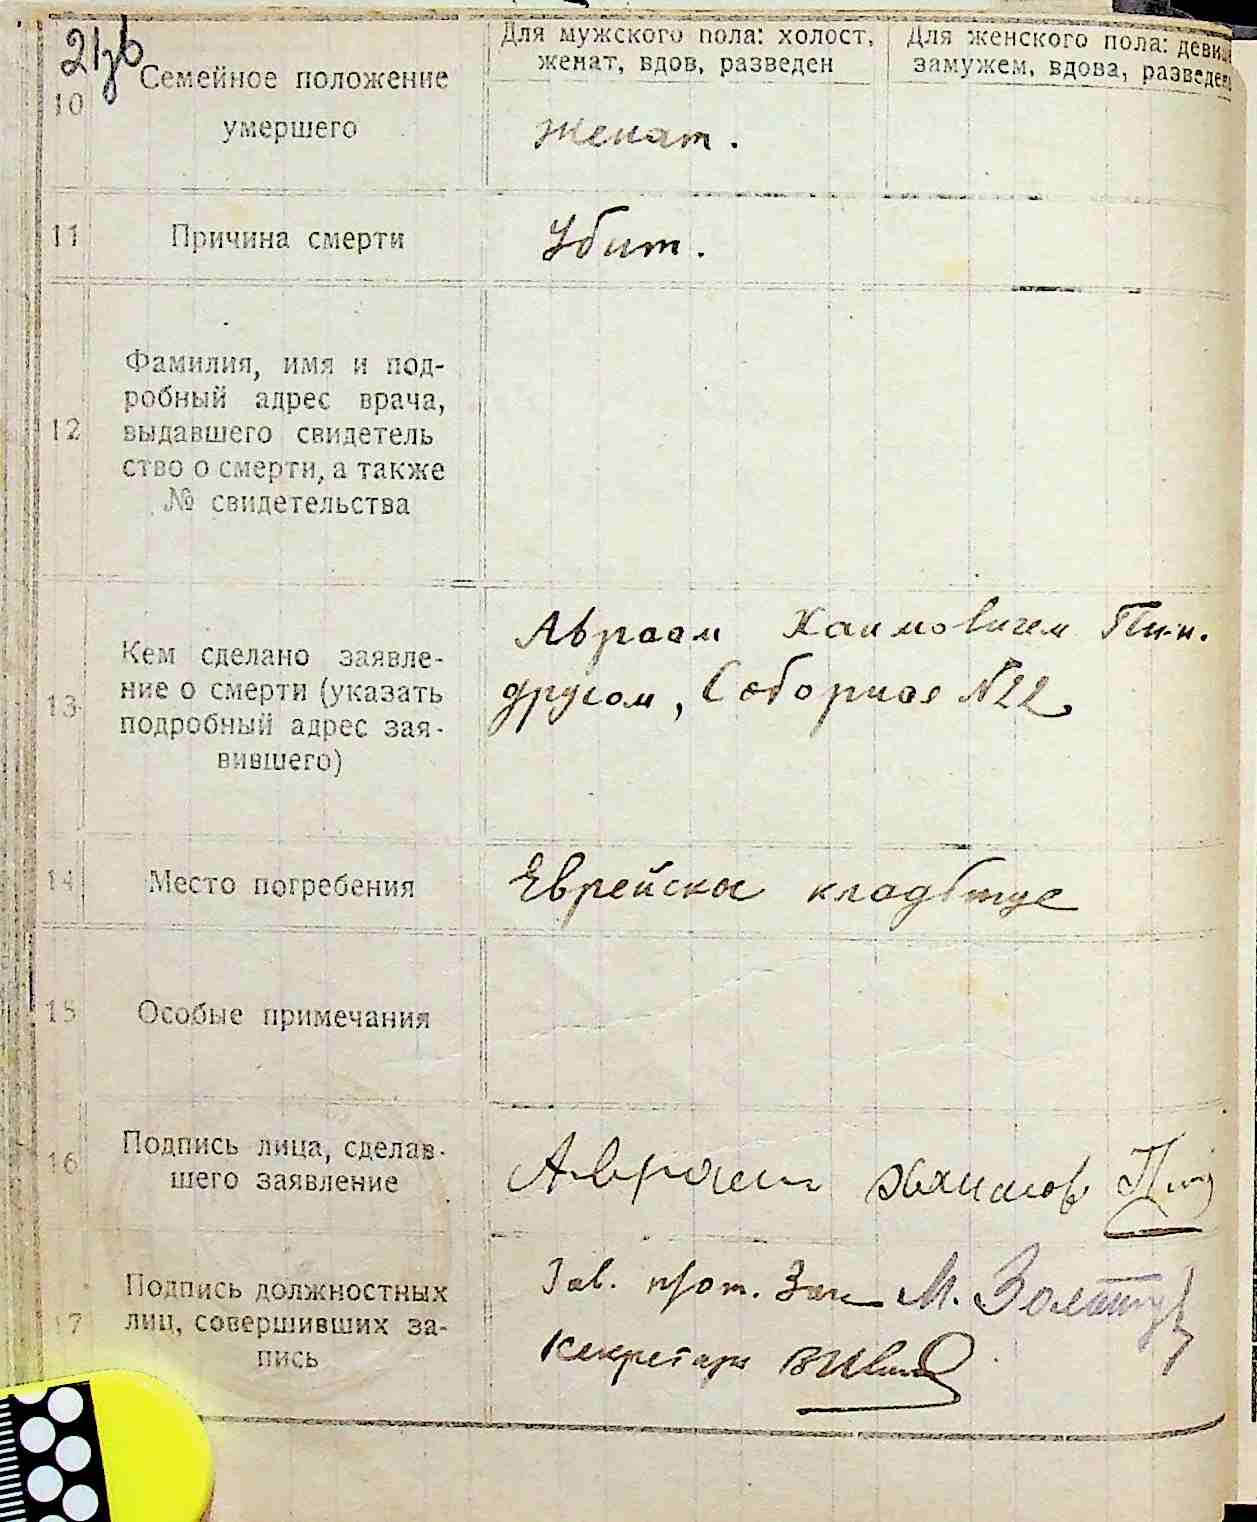 Для мужского пола: холост,
женат, вдов, разведен
Для женского пола: девиц
замужем, вдова, разведена
10
Семейное положение
умершего
женат.
11
Причина смерти
Убит.
12
Фамилия, имя и под-
робный адрес врача,
выдавшего свидетель
ство о смерти, а также
№ свидетельства
13
Кем сделано заявле-
ние о смерти (указать
подробный адрес зая-
вившего)
Авраам Хаимовичем Пин-
друсом, Соборная №22
14
Место погребения
Еврейское кладбище
15
Особые примечания
16
Подпись лица, сделав-
шего заявление
Авраам
17
Подпись должностных
лиц, совершивших за-
пись
Зав. М.
Секретарь